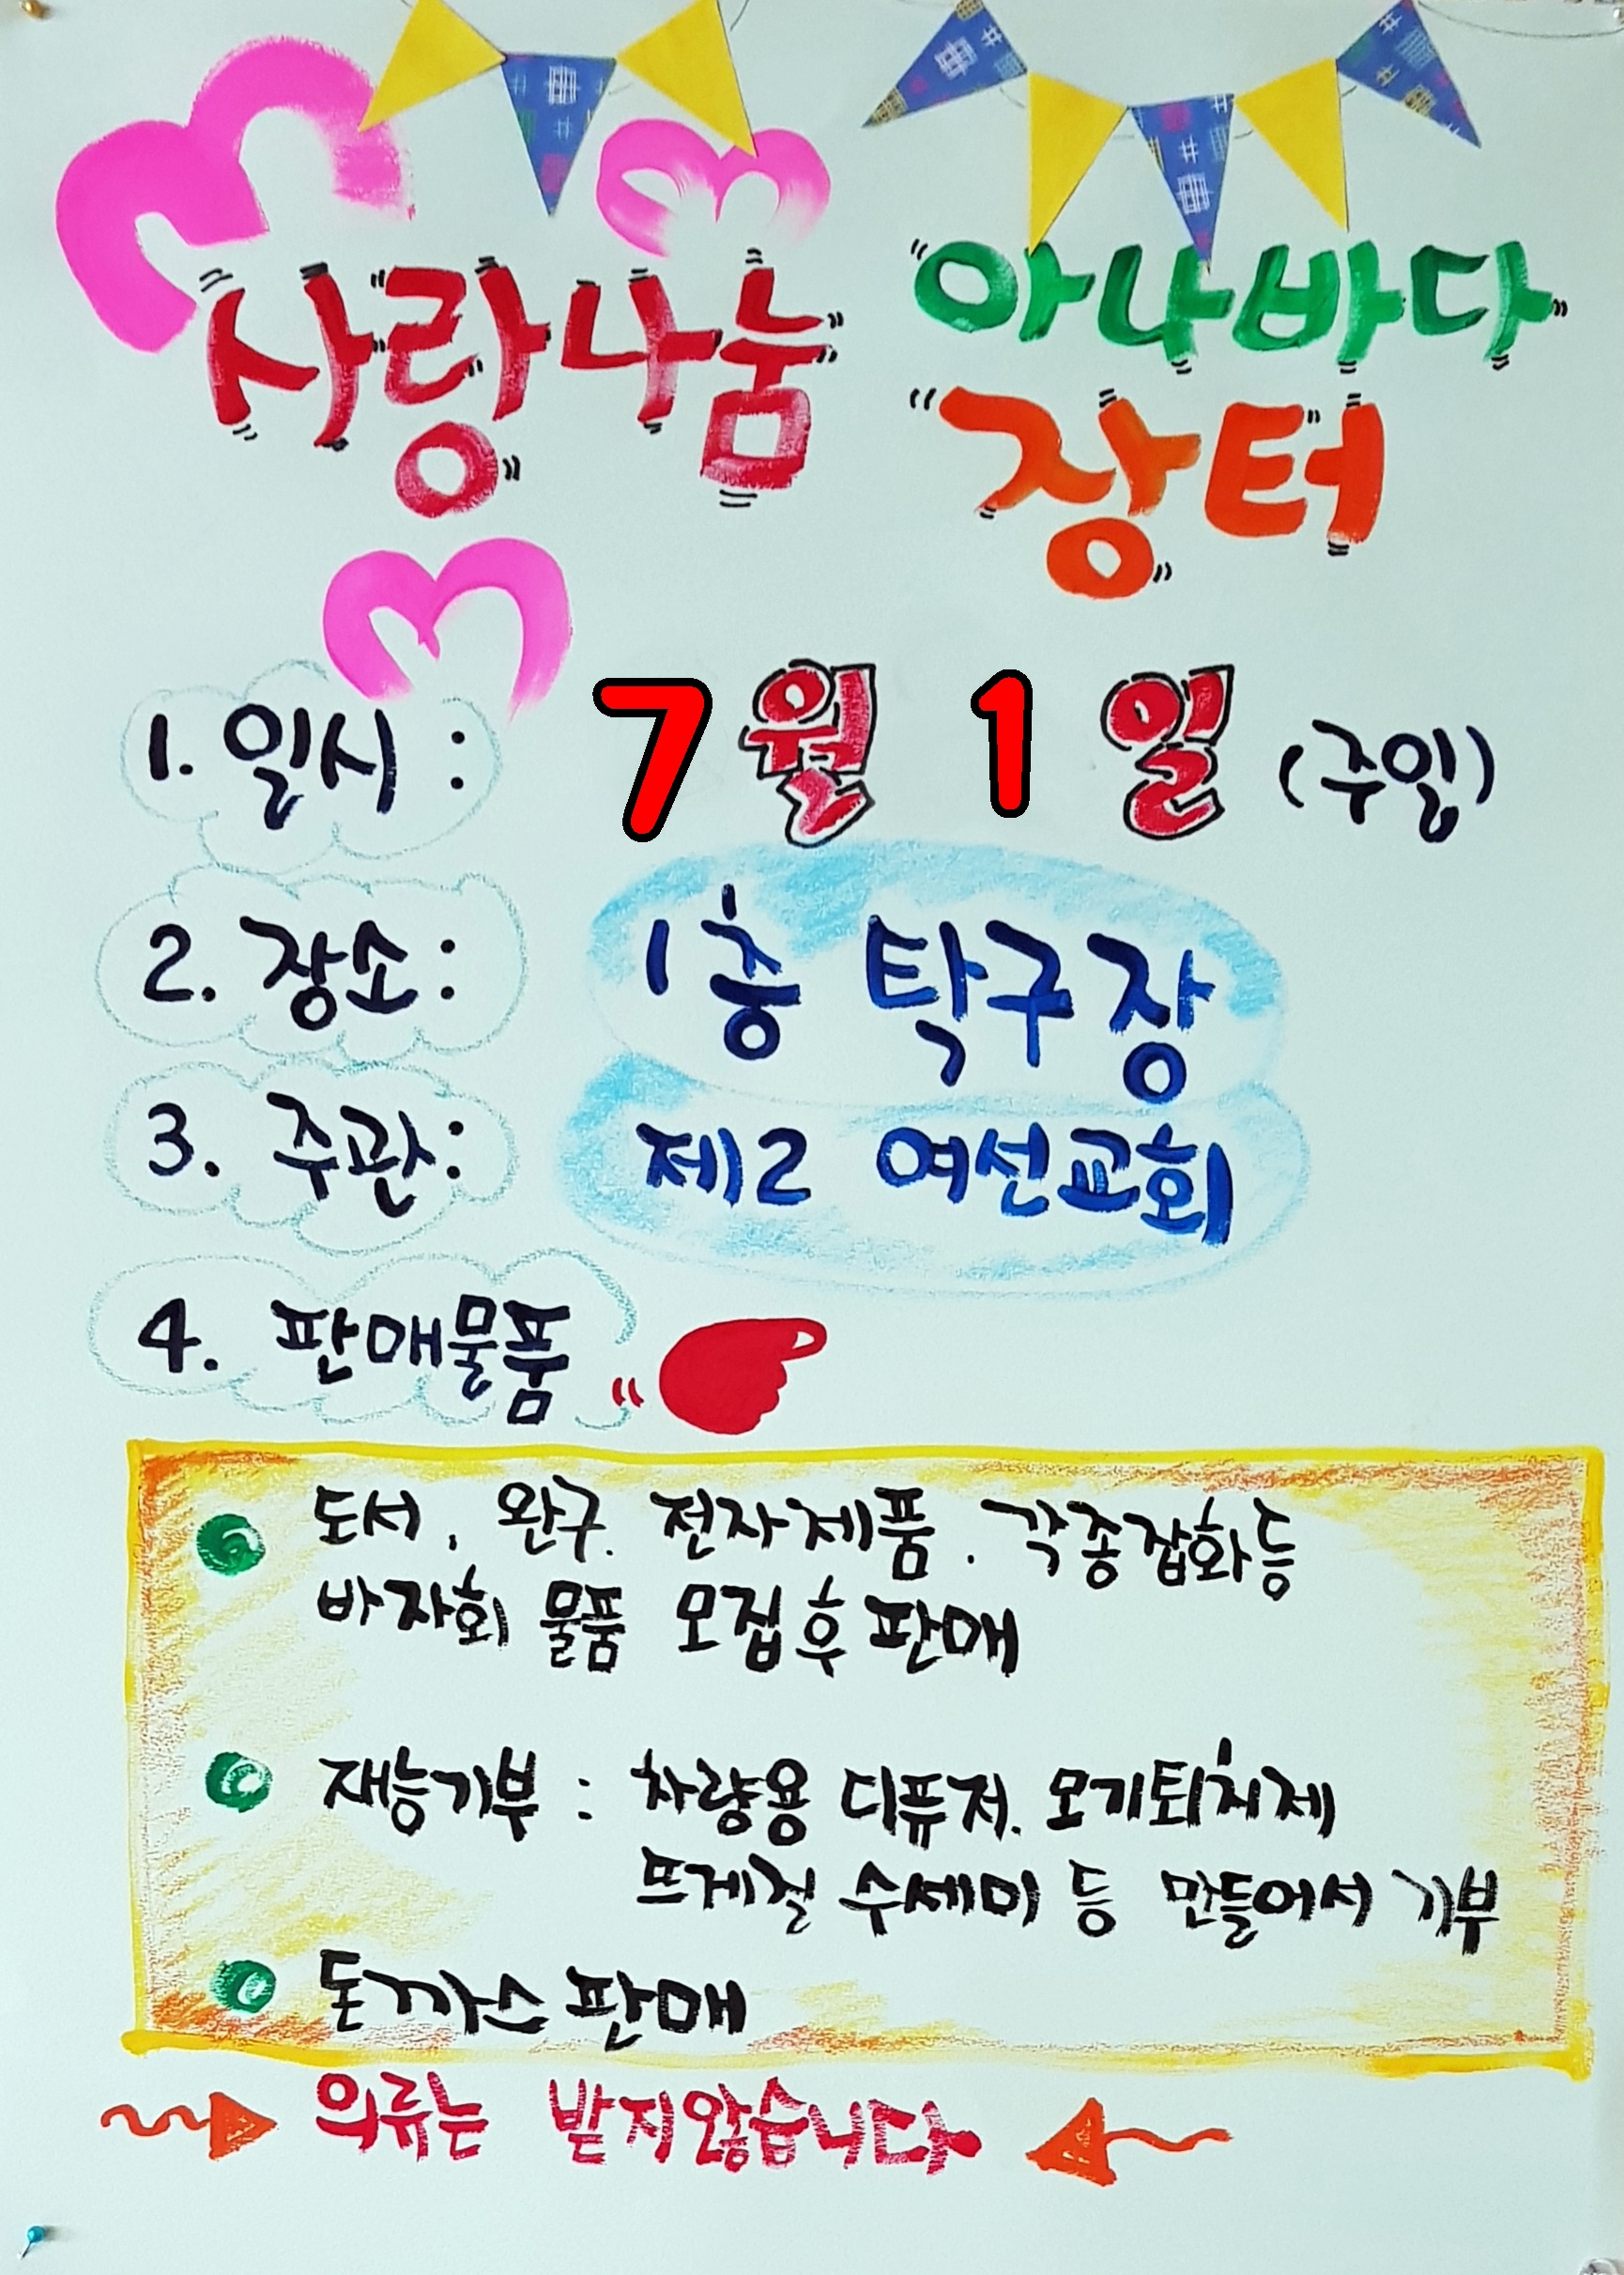 사랑나눔 아나바다
장터
1. 일시 : 7월 1일 (주일)
2. 장소 : 1층 탁구장
3. 주관 : 제2 여선교회
4. 판매물품
도서, 완구. 전자제품. 각종잡화등
바자회 물품 모집후 판매
재능기부 : 차량용 디퓨저. 모기퇴치제
뜨게질 수세미 등 만들어서 기부
돈까스 판매
의류는 받지않습니다